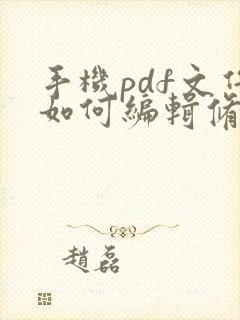 手機pdf文
如何編輯
趙磊